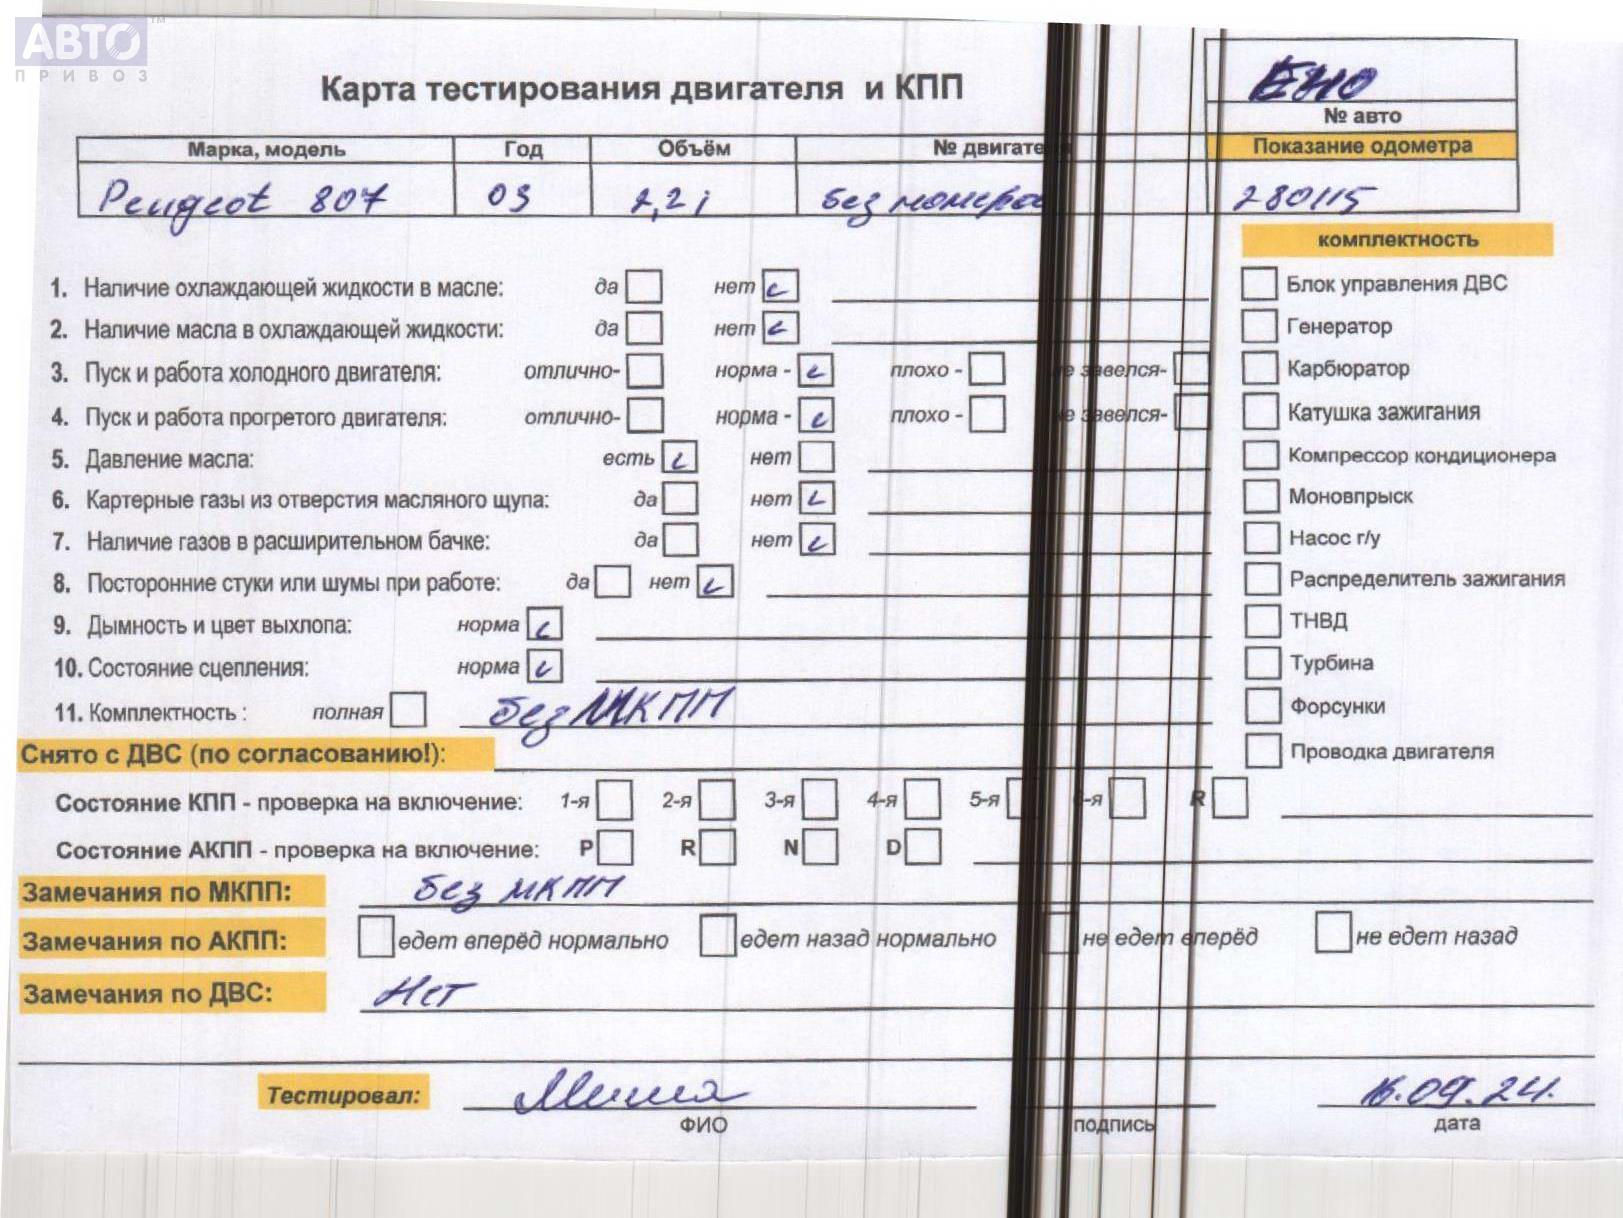 АВТО™
ПРИВОЗ
Карта тестирования двигателя и КПП
№ авто
Марка, модель Год Объём № двигателя Показание одометра
Peugeot 807 03 2,2i без номера 280115
комплектность
1. Наличие охлаждающей жидкости в масле: да нет Блок управления ДВС
2. Наличие масла в охлаждающей жидкости: да нет Генератор
3. Пуск и работа холодного двигателя: отлично- норма - плохо - не завелся- Карбюратор
4. Пуск и работа прогретого двигателя: отлично- норма - плохо - не завелся- Катушка зажигания
5. Давление масла: есть нет Компрессор кондиционера
6. Картерные газы из отверстия масляного щупа: да нет Моновпрыск
7. Наличие газов в расширительном бачке: да нет Насос г/у
8. Посторонние стуки или шумы при работе: да нет Распределитель зажигания
9. Дымность и цвет выхлопа: норма ТНВД
10. Состояние сцепления: норма Турбина
11. Комплектность : полная без МКПП Форсунки
Снято с ДВС (по согласованию!): Проводка двигателя
Состояние КПП - проверка на включение: 1-я 2-я 3-я 4-я 5-я 6-я R
Состояние АКПП - проверка на включение: P R N D
Замечания по МКПП: без МКПП
Замечания по АКПП: едет вперёд нормально едет назад нормально не едет вперёд не едет назад
Замечания по ДВС: Нет
Тестировал: Миша 16.09.24.
ФИО подпись дата